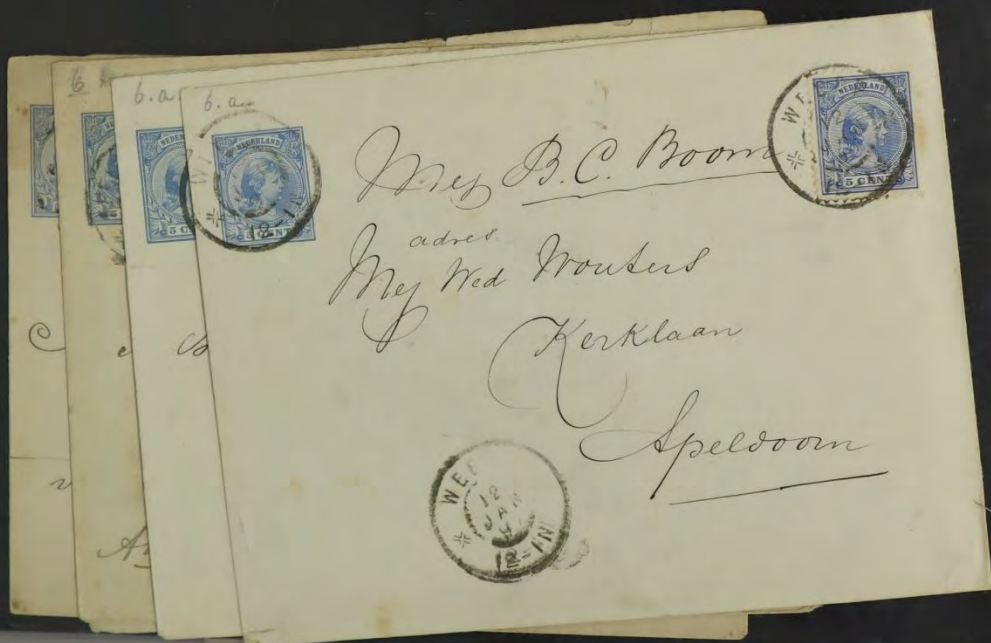 6
6.a
6.a
NEDERLAND
5 CENT
NEDERLAND
5 CENT
NEDERLAND
5 CENT
Mej B.C. Boom
adres
Mej Wed Wouters
Kerklaan
Apeldoorn
12
JAN
12-1N